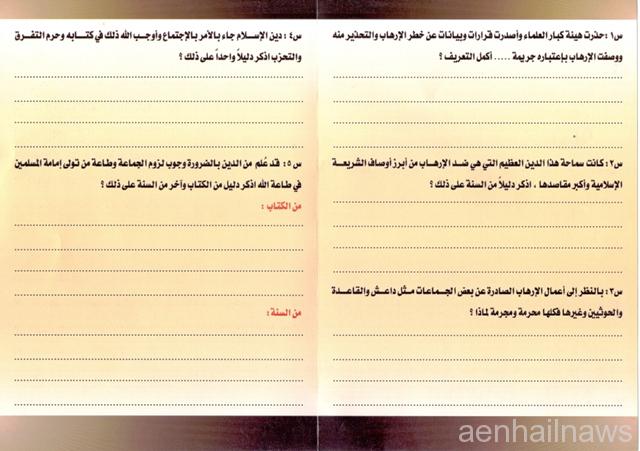 س١ : حذرت هيئة كبار العلماء وأصدرت قرارات وبيانات عن خطر الإرهاب والتحذير منه
ووصفت الإرهاب بإعتباره جريمة ..... أكمل التعريف ؟
س٢ : كانت سماحة هذا الدين العظيم التي هي ضد الإرهــاب من أبرز أوصاف الشريعــة
الإسلامية وأكبر مقاصدها ، اذكر دليلاً من السنة على ذلك ؟
س٣ : بالنظر إلى أعمال الإرهاب الصادرة عن بعض الجــماعات مـثل داعـش والقاعــدة
والحوثيين وغيرها فكلها محرمة ومجرمة لماذا ؟
س٤ : دين الإســلام جاء بـالأمر بـالإجتماع وأوجـب الله ذلك في كتــابه وحرم التفــرق
والتحزب اذكر دليلاً واحداً على ذلك ؟
س٥ : قد عُلم من الدين بالضرورة وجوب لزوم الجماعة وطاعة من تولى إمامة المسلمين
في طاعة الله اذكر دليل من الكتاب وآخر من السنة على ذلك ؟
من الكتاب :
من السنة :
aenhailnaws